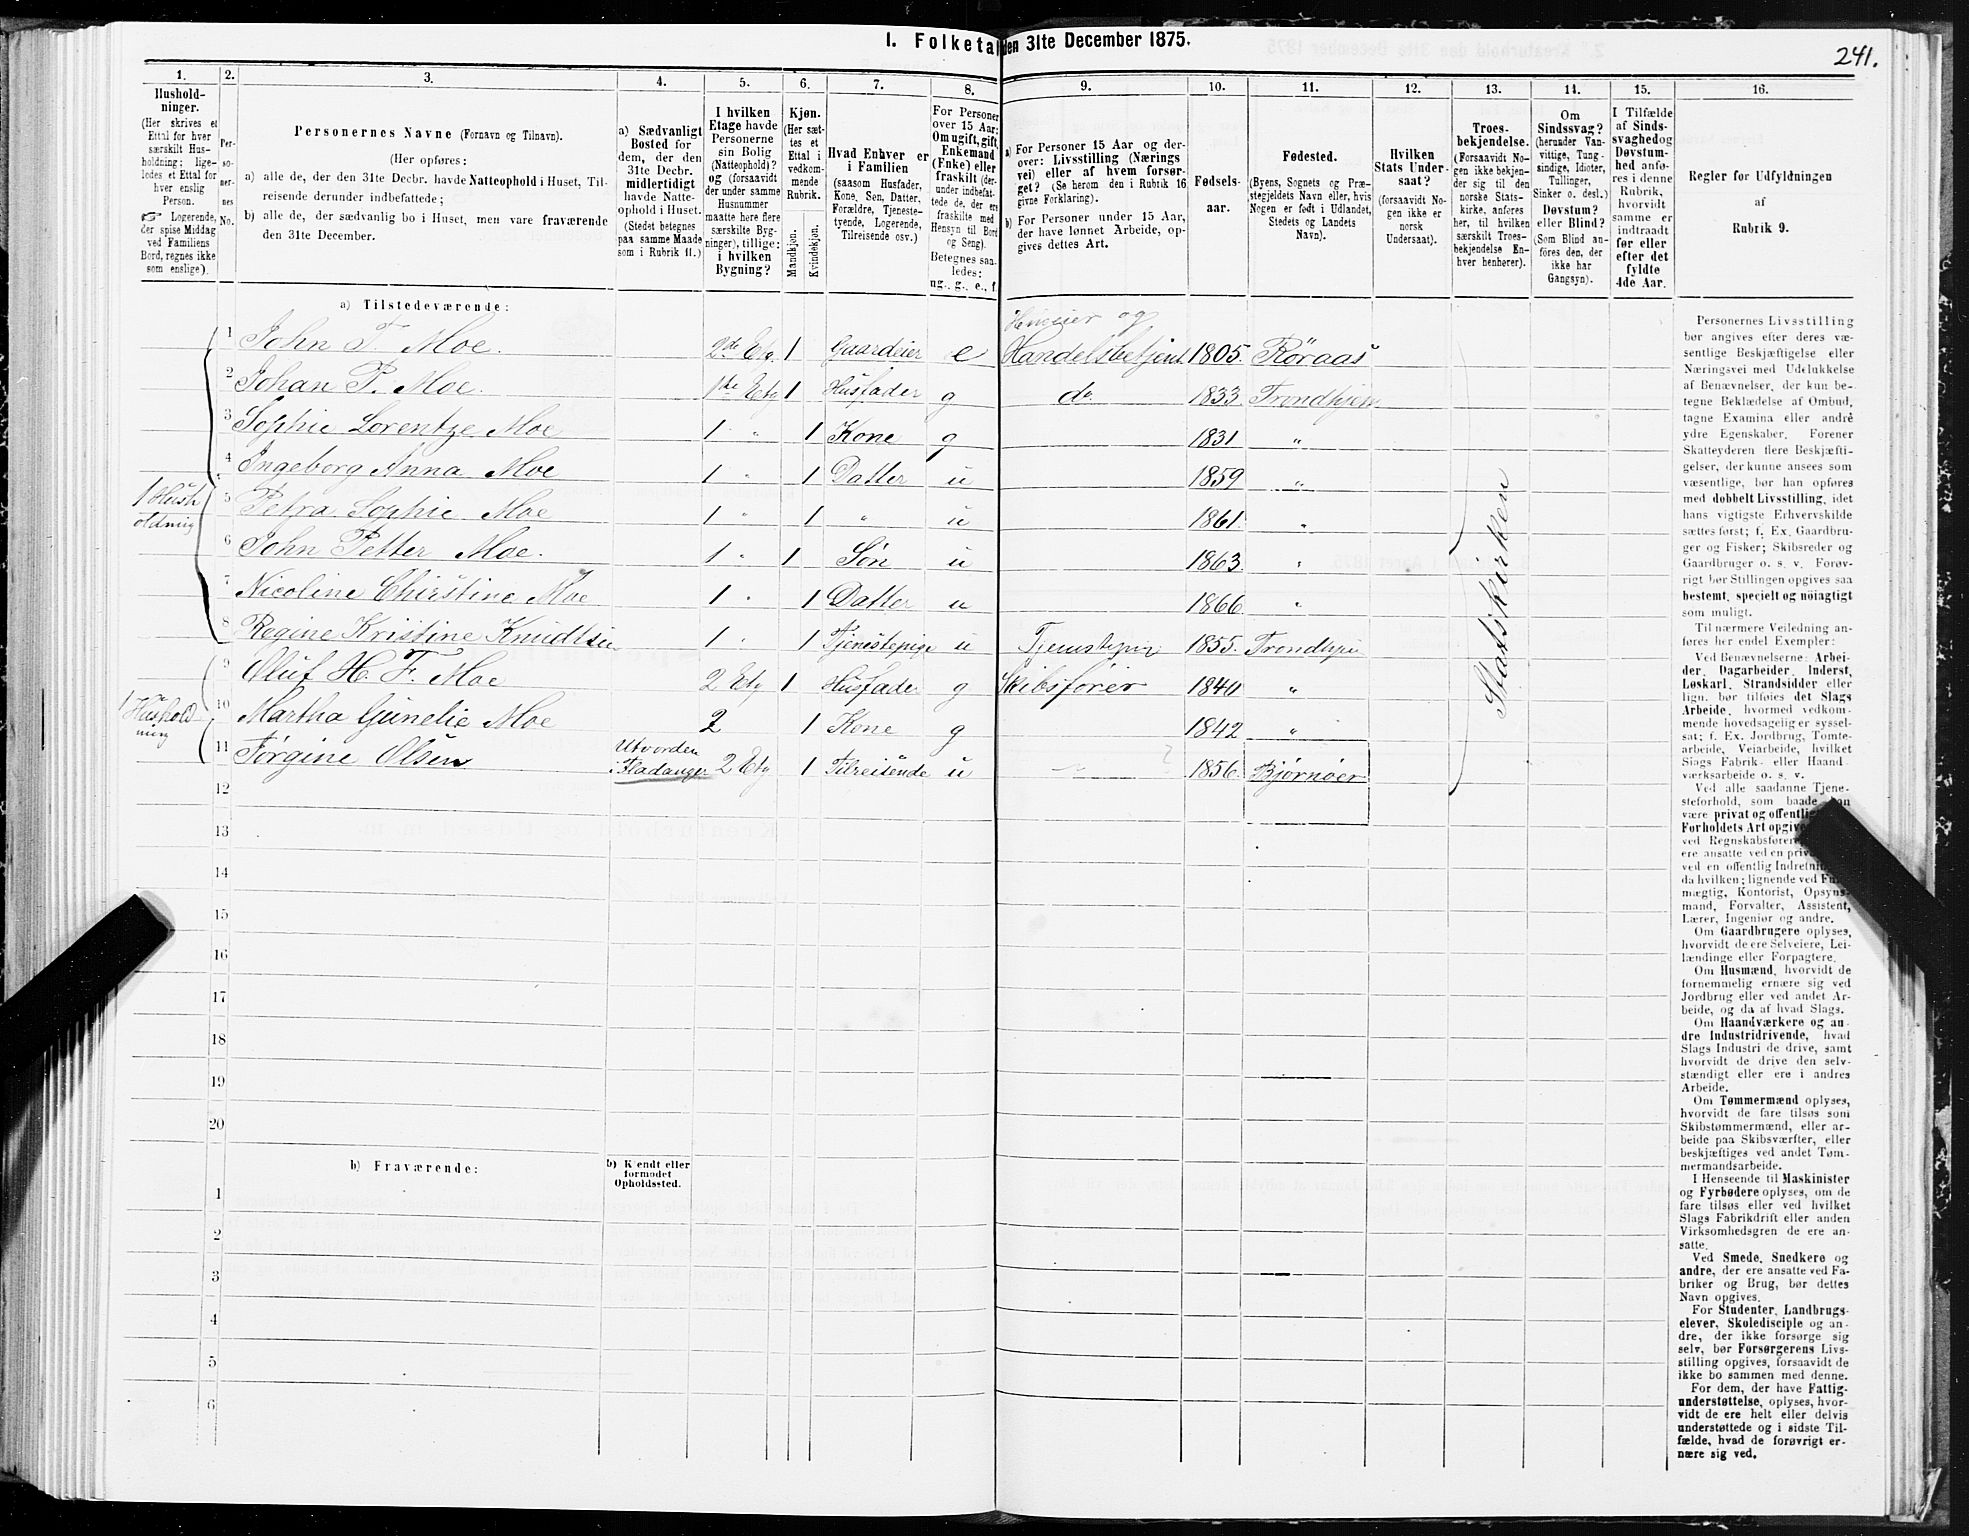 241.
I. Folketal den 31te December 1875.
1. 2. 3. 4. 5. 6. 7. 8. 9. 10. 11. 12. 13. 14. 15. 16.
Hushold-
ninger.
(Her skrives et
Ettal for hver
særskilt Hus-
holdning; lige-
ledes et Ettal for
hver enslig
Person.
☞ Logerende,
der spise Middag
ved Familiens
Bord, regnes ikke
som enslige).
Per-
so-
ner-
nes
No.
Personernes Navne (Fornavn og Tilnavn).
(Her opføres:
a) alle de, der den 31te Decbr. havde Natteophold i Huset, Til-
reisende derunder indbefattede;
b) alle de, der sædvanlig bo i Huset, men vare fraværende
den 31te December.
a) Sædvanligt
Bosted for
dem, der den
31te Decbr.
midlertidigt
havde Natte-
ophold i Huset.
(Stedet betegnes
paa samme Maade
som i Rubrik 11.)
I hvilken
Etage havde
Personerne
sin Bolig
(Natteophold)?
og (forsaavidt
der under samme
Husnummer
maatte høre flere
særskilte Byg-
ninger), tillige:
i hvilken
Bygning?
Kjøn.
(Her sæt-
tes et
Ettal i
vedkom-
mende
Rubrik.
Mandkjøn.
Kvindekjøn.
Hvad Enhver er
i Familien
(saasom Husfader,
Kone, Søn, Datter,
Forældre, Tjeneste-
tyende, Logerende,
Tilreisende osv.)
For Personer
over 15 Aar:
Om ugift, gift,
Enkemand
(Enke) eller
fraskilt (der-
under indbefat-
tede de, der ere
fraskilte med
Hensyn til Bord
og Seng).
Betegnes saa-
ledes:
ug., g., e., f.
a) For Personer 15 Aar og der-
over: Livsstilling (Nærings
vei) eller af hvem forsør-
get? (Se herom den i Rubrik 16
givne Forklaring).
b) For Personer under 15 Aar,
der have lønnet Arbeide, op-
gives dettes Art.
Fødsels-
aar.
Fødested.
(Byens, Sognets og Præ-
stegjeldets Navn eller, hvis
Nogen er født i Udlandet,
Stedets og Landets
Navn).
Hvilken
Stats Under-
saat?
(forsaavidt No-
gen ikke er
norsk
Undersaat).
Troes-
bekjendelse.
(Forsaavidt No-
gen ikke bekjen-
der sig til den
norske Stats-
kirke, anføres
her, til hvilken
særskilt Troes-
bekjendelse En-
hver henhører).
Om
Sindssvag?
(herunder Van-
vittige, Tung-
sindige, Idioter,
Tullinger,
Sinker o. desl.)
Døvstum?
eller Blind?
(Som Blind an-
føres den, der
ikke har
Gangsyn).
I Tilfælde
af Sinds-
svaghed og
Døvstum-
hed anfø-
res i denne
Rubrik,
hvorvidt
samme er
indtraadt
før eller
efter det
fyldte
4de Aar.
Regler for Udfyldningen
af
Rubrik 9.
a) Tilstedeværende:
1 John F. Moe. 2de Etg. 1 Gaardeier e Huseier og Handelsbetjent 1805. Röraas
2 Johan P. Moe. 1ste Etg 1 Husfader g do 1833. Trondhjem
3 Sophie Lorentze Moe 1 " 1 Kone g 1831 "
4 Ingeborg Anna Moe 1 " 1 Datter u 1859 "
1 Hush
oldning
5 Petra Sophie Moe 1 " 1 " u 1861. "
6 John Petter Moe. 1 " 1 Søn u 1863. "
7 Nicoline Chirstine Moe 1 " 1 Datter u 1866. "
8 Regine Kristine Knudtsen 1 " 1 Tjenestepige u Tjenestepige 1855. Trondhjem
9 Oluf H. F. Moe 2 Etg 1 Husfader g Skibsfører 1840 "
1 Hushold
ning
10 Martha Gunelie Moe 2 1 Kone g 1842 "
11 Jørgine Olsen Utvorden i Fladanger 2 Etg 1 Tilreisende u ? 1856. Bjørnöer
Statskirken
12
13
14
15
16
17
18
19
20
b) Fraværende:
b) Kjendt eller
formodet
Opholdssted.
1
2
3
4
5
6
Personernes Livsstilling
bør angives efter deres væ-
sentlige Beskjæftigelse eller
Næringsvei med Udelukkelse
af Benævnelser, der kun be-
tegne Beklædelse af Ombud,
tagne Examina eller andre
ydre Egenskaber. Forener
Skatteyderen flere Beskjæfti-
gelser, der kunne ansees som
væsentlige, bør han opføres
med dobbelt Livsstilling, idet
hans vigtigste Erhvervskilde
sættes først; f. Ex. Gaardbru-
ger og Fisker; Skibsreder og
Gaardbruger o. s. v. Forøv-
rigt bør Stillingen opgives saa
bestemt, specielt og nøiagtigt
som muligt.
Til nærmere Veiledning an-
føres her endel Exempler:
Ved Benævnelserne: Arbei-
der, Dagarbeider, Inderst,
Løskarl, Strandsidder eller
lign. bør tilføies det Slags
Arbeide, hvormed vedkom-
mende hovedsagelig er syssel-
sat; f. Ex. Jordbrug, Tomte-
arbeide, Veiarbeide, hvilket
Slags Fabrik- eller Haand-
værksarbeide o. s. v.
Ved alle saadanne Tjene-
steforhold, som baade kan
være privat og offentlig
Forholdets Art opgives
ved Regnskabsfører
ere ansatte ved en priv
ved en offentlig Indretning
da hvilken; lignende ved Fuld-
mægtig, Kontorist, Opsyns-
mand, Forvalter, Assistent,
Lærer, Ingeniør og andre.
Om Gaardbrugere oplyses,
hvorvidt de ere Selveiere, Lei-
lændinge eller Forpagtere.
Om Husmænd, hvorvidt de
fornemmelig ernære sig ved
Jordbrug eller ved andet Ar-
beide, og da af hvad Slags.
Om Haandværkere og an-
dre Industridrivende, hvad
Slags Industri de drive, samt
hvorvidt de drive den selv-
stændigt eller ere i andres
Arbeide.
Om Tømmermænd oplyses,
hvorvidt de fare tilsøs som
Skibstømmermænd, eller ar-
beide paa Skibsværfter, eller
beskjæftiges ved andet Tøm-
mermandsarbeide.
I Henseende til Maskinister
og Fyrbødere oplyses, om de
fare tilsøs eller ved hvilket
Slags Fabrikdrift eller anden
Virksomhedsgren de ere an-
satte.
Ved Smede, Snedkere og
andre, der ere ansatte ved Fa-
briker og Brug, bør dettes
Navn opgives.
For Studenter, Landbrugs-
elever, Skoledisciple og an-
dre, der ikke forsørge sig
selv, bør Forsørgerens Livs-
stilling opgives, forsaavidt de
ikke bo sammen med denne.
For dem, der have Fattig-
understøttelse, oplyses, hvor-
vidt de ere helt eller delvis
understøttede og i sidste Til-
fælde, hvad de forøvrigt er-
nære sig ved.